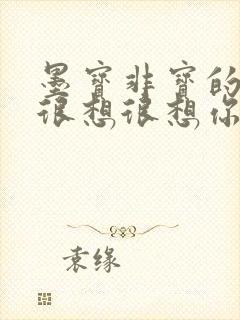 墨宝非宝的
很想很想你
袁缘